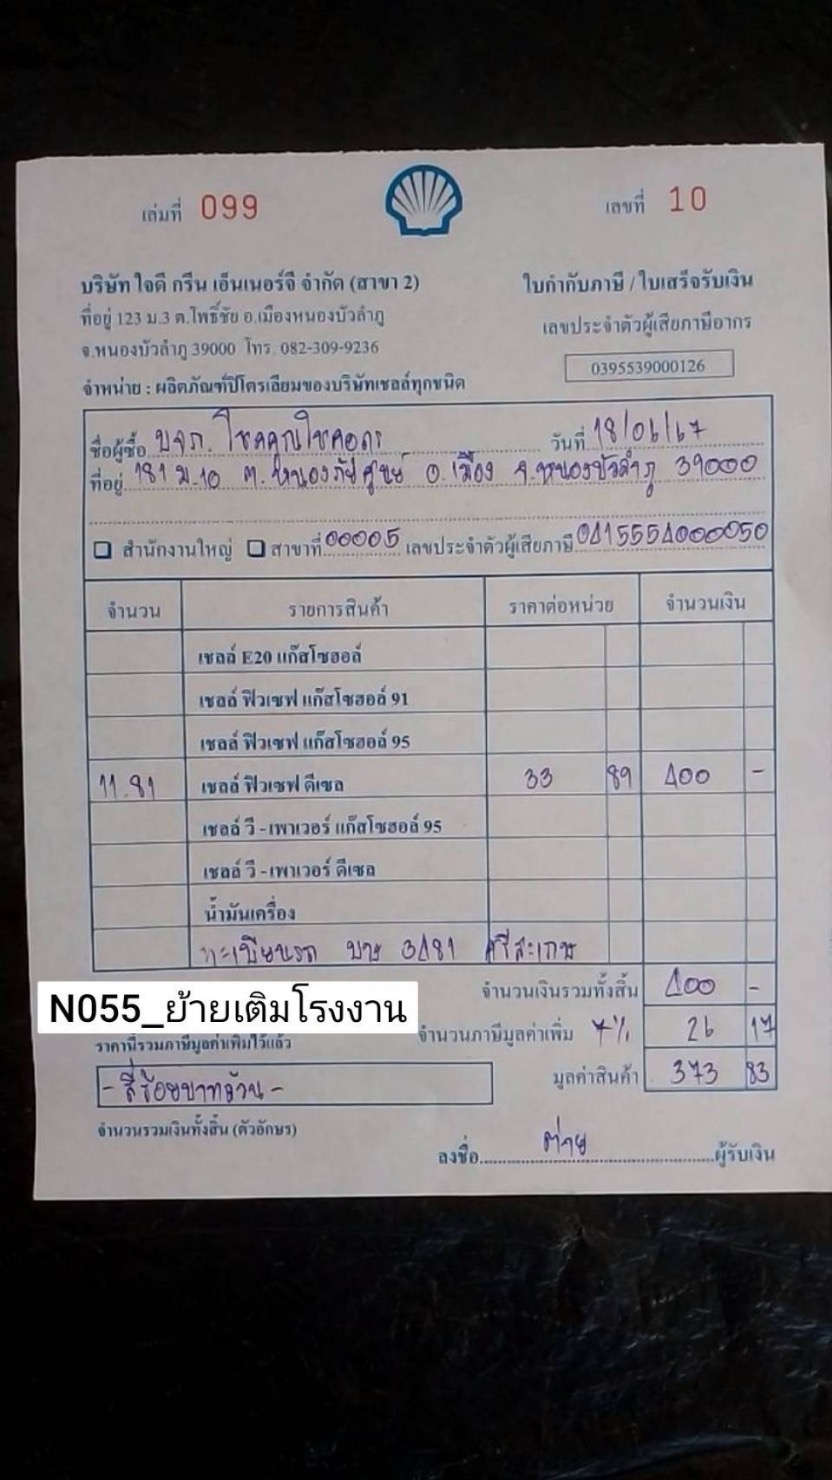 เล่มที่ 099
เลขที่ 10
บริษัท ใจดี กรีน เอ็นเนอร์จี จำกัด (สาขา 2)
ที่อยู่ 123 ม.3 ต.โพธิ์ชัย อ.เมืองหนองบัวลำภู
จ.หนองบัวลำภู 39000 โทร. 082-309-9236
จำหน่าย : ผลิตภัณฑ์ปิโตรเลียมของบริษัทเชลล์ทุกชนิด
ใบกำกับภาษี / ใบเสร็จรับเงิน
เลขประจำตัวผู้เสียภาษีอากร
0395539000126
ชื่อผู้ซื้อ บจก. โชคคูณโชคอุดร วันที่ 18/06/67
ที่อยู่ 181 ม.10 ต.หนองภัยศูนย์ อ.เมือง จ.หนองบัวลำภู 39000
สำนักงานใหญ่ สาขาที่ 00005 เลขประจำตัวผู้เสียภาษี 0415554000050
จำนวน รายการสินค้า ราคาต่อหน่วย จำนวนเงิน
เชลล์ E20 แก๊สโซฮอล์
เชลล์ ฟิวเซฟ แก๊สโซฮอล์ 91
เชลล์ ฟิวเซฟ แก๊สโซฮอล์ 95
11.81 เชลล์ ฟิวเซฟ ดีเซล 33 89 400 -
เชลล์ วี - เพาเวอร์ แก๊สโซฮอล์ 95
เชลล์ วี - เพาเวอร์ ดีเซล
น้ำมันเครื่อง
ทะเบียนรถ บษ 3481 ศรีสะเกษ
จำนวนเงินรวมทั้งสิ้น 400 -
N055_ย้ายเติมโรงงาน
จำนวนภาษีมูลค่าเพิ่ม 7% 26 17
ราคานี้รวมภาษีมูลค่าเพิ่มไว้แล้ว
มูลค่าสินค้า 373 83
- สี่ร้อยบาทถ้วน -
จำนวนรวมเงินทั้งสิ้น (ตัวอักษร)
ลงชื่อ ต่าย ผู้รับเงิน